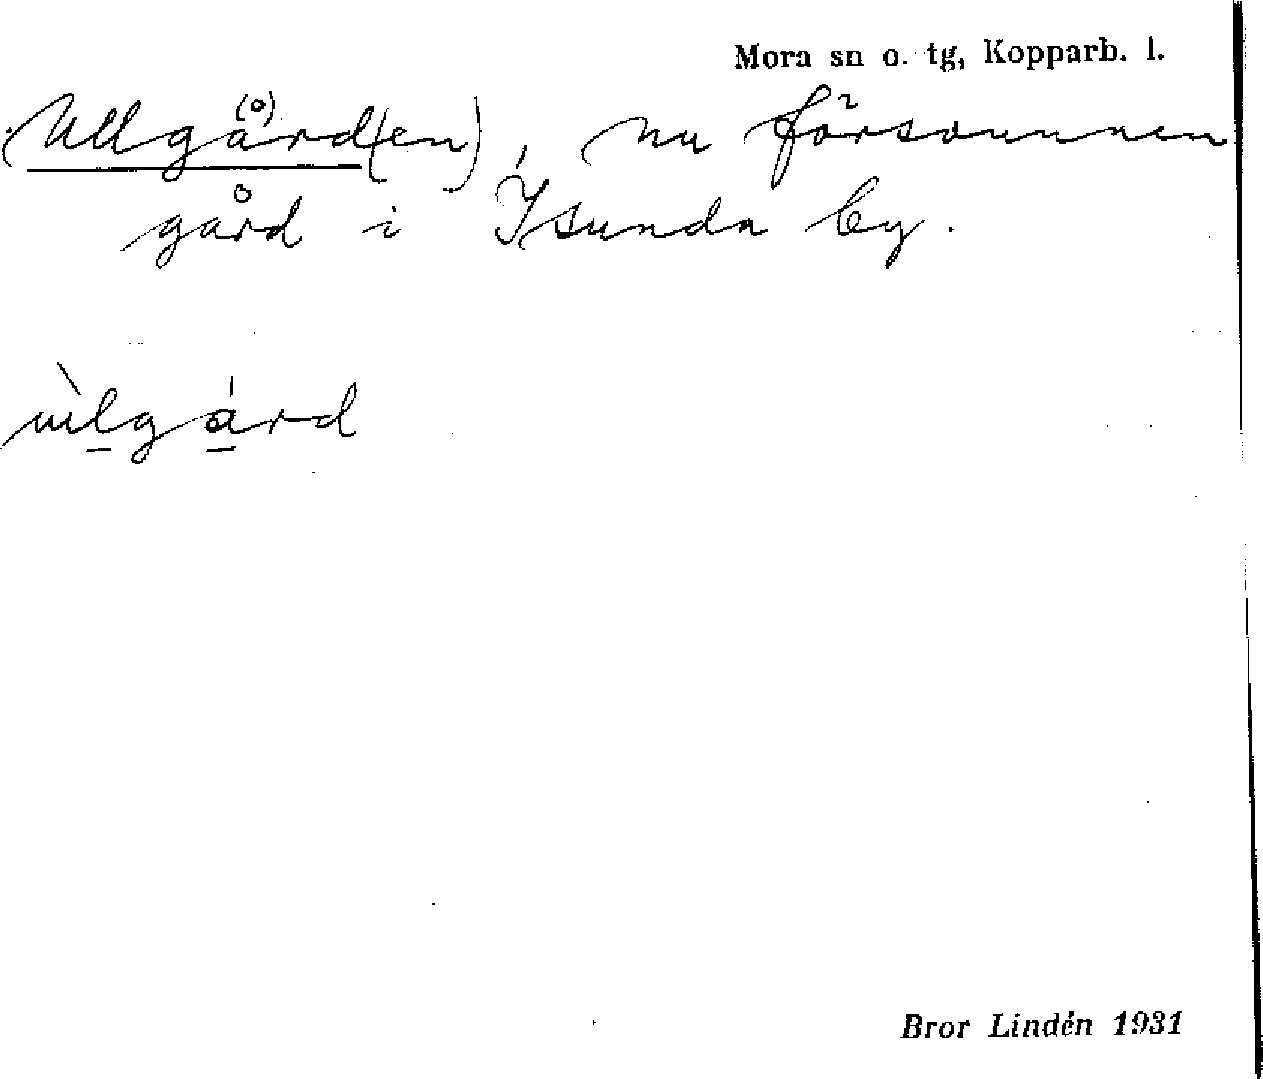 Mora sn o. tg, Kopparb. l.
Ullgå(o)rd(en), nu försvunnen
gård i Isunda by.
ùlgárd
Bror Lindén 1931